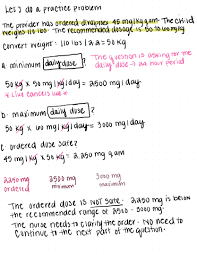 Let's do a practice problem
The provider has ordered drug 45 mg/kg qam. The child
weighs 110 lbs. The recommended dosage is 50 to 60 mg/kg
Convert weight: 110 lbs / 2.2 = 50 kg
a. minimum daily dose? The question is asking for the
daily dose → 24 hour period
50 kg x 50 mg / kg / day = 2500 mg / day
* Like cancels like *
b. maximum daily dose?
50 kg x 60 mg / kg / day = 3000 mg / day
c. ordered dose safe?
45 mg / kg x 50 kg = 2,250 mg qam
2250 mg 2500 mg 3000 mg
ordered minimum maximum
The ordered dose is not safe. 2250 mg is below
the recommended range of 2500 - 3000 mg.
The nurse needs to clarify the order. No need to
continue to the next part of the question.